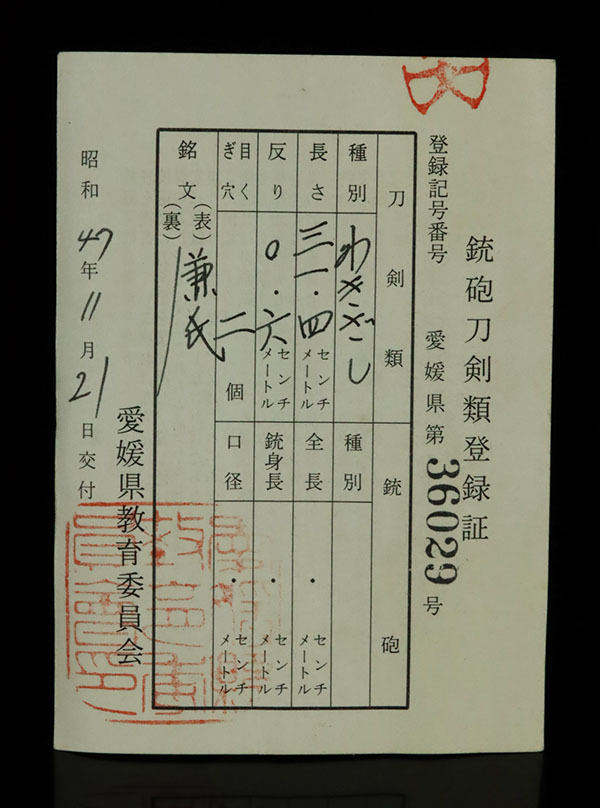 銃砲刀剣類登録証
登録記号番号 愛媛県第36029号
刀剣類 銃砲
種別 わきざし 種別
長さ 三一.四 センチメートル 全長 . センチメートル
反り 0.六 センチメートル 銃身長 . センチメートル
目くぎ穴 二 個 口径 . センチメートル
銘文(表)(裏) 兼氏
昭和47年11月21日交付
愛媛県教育委員会